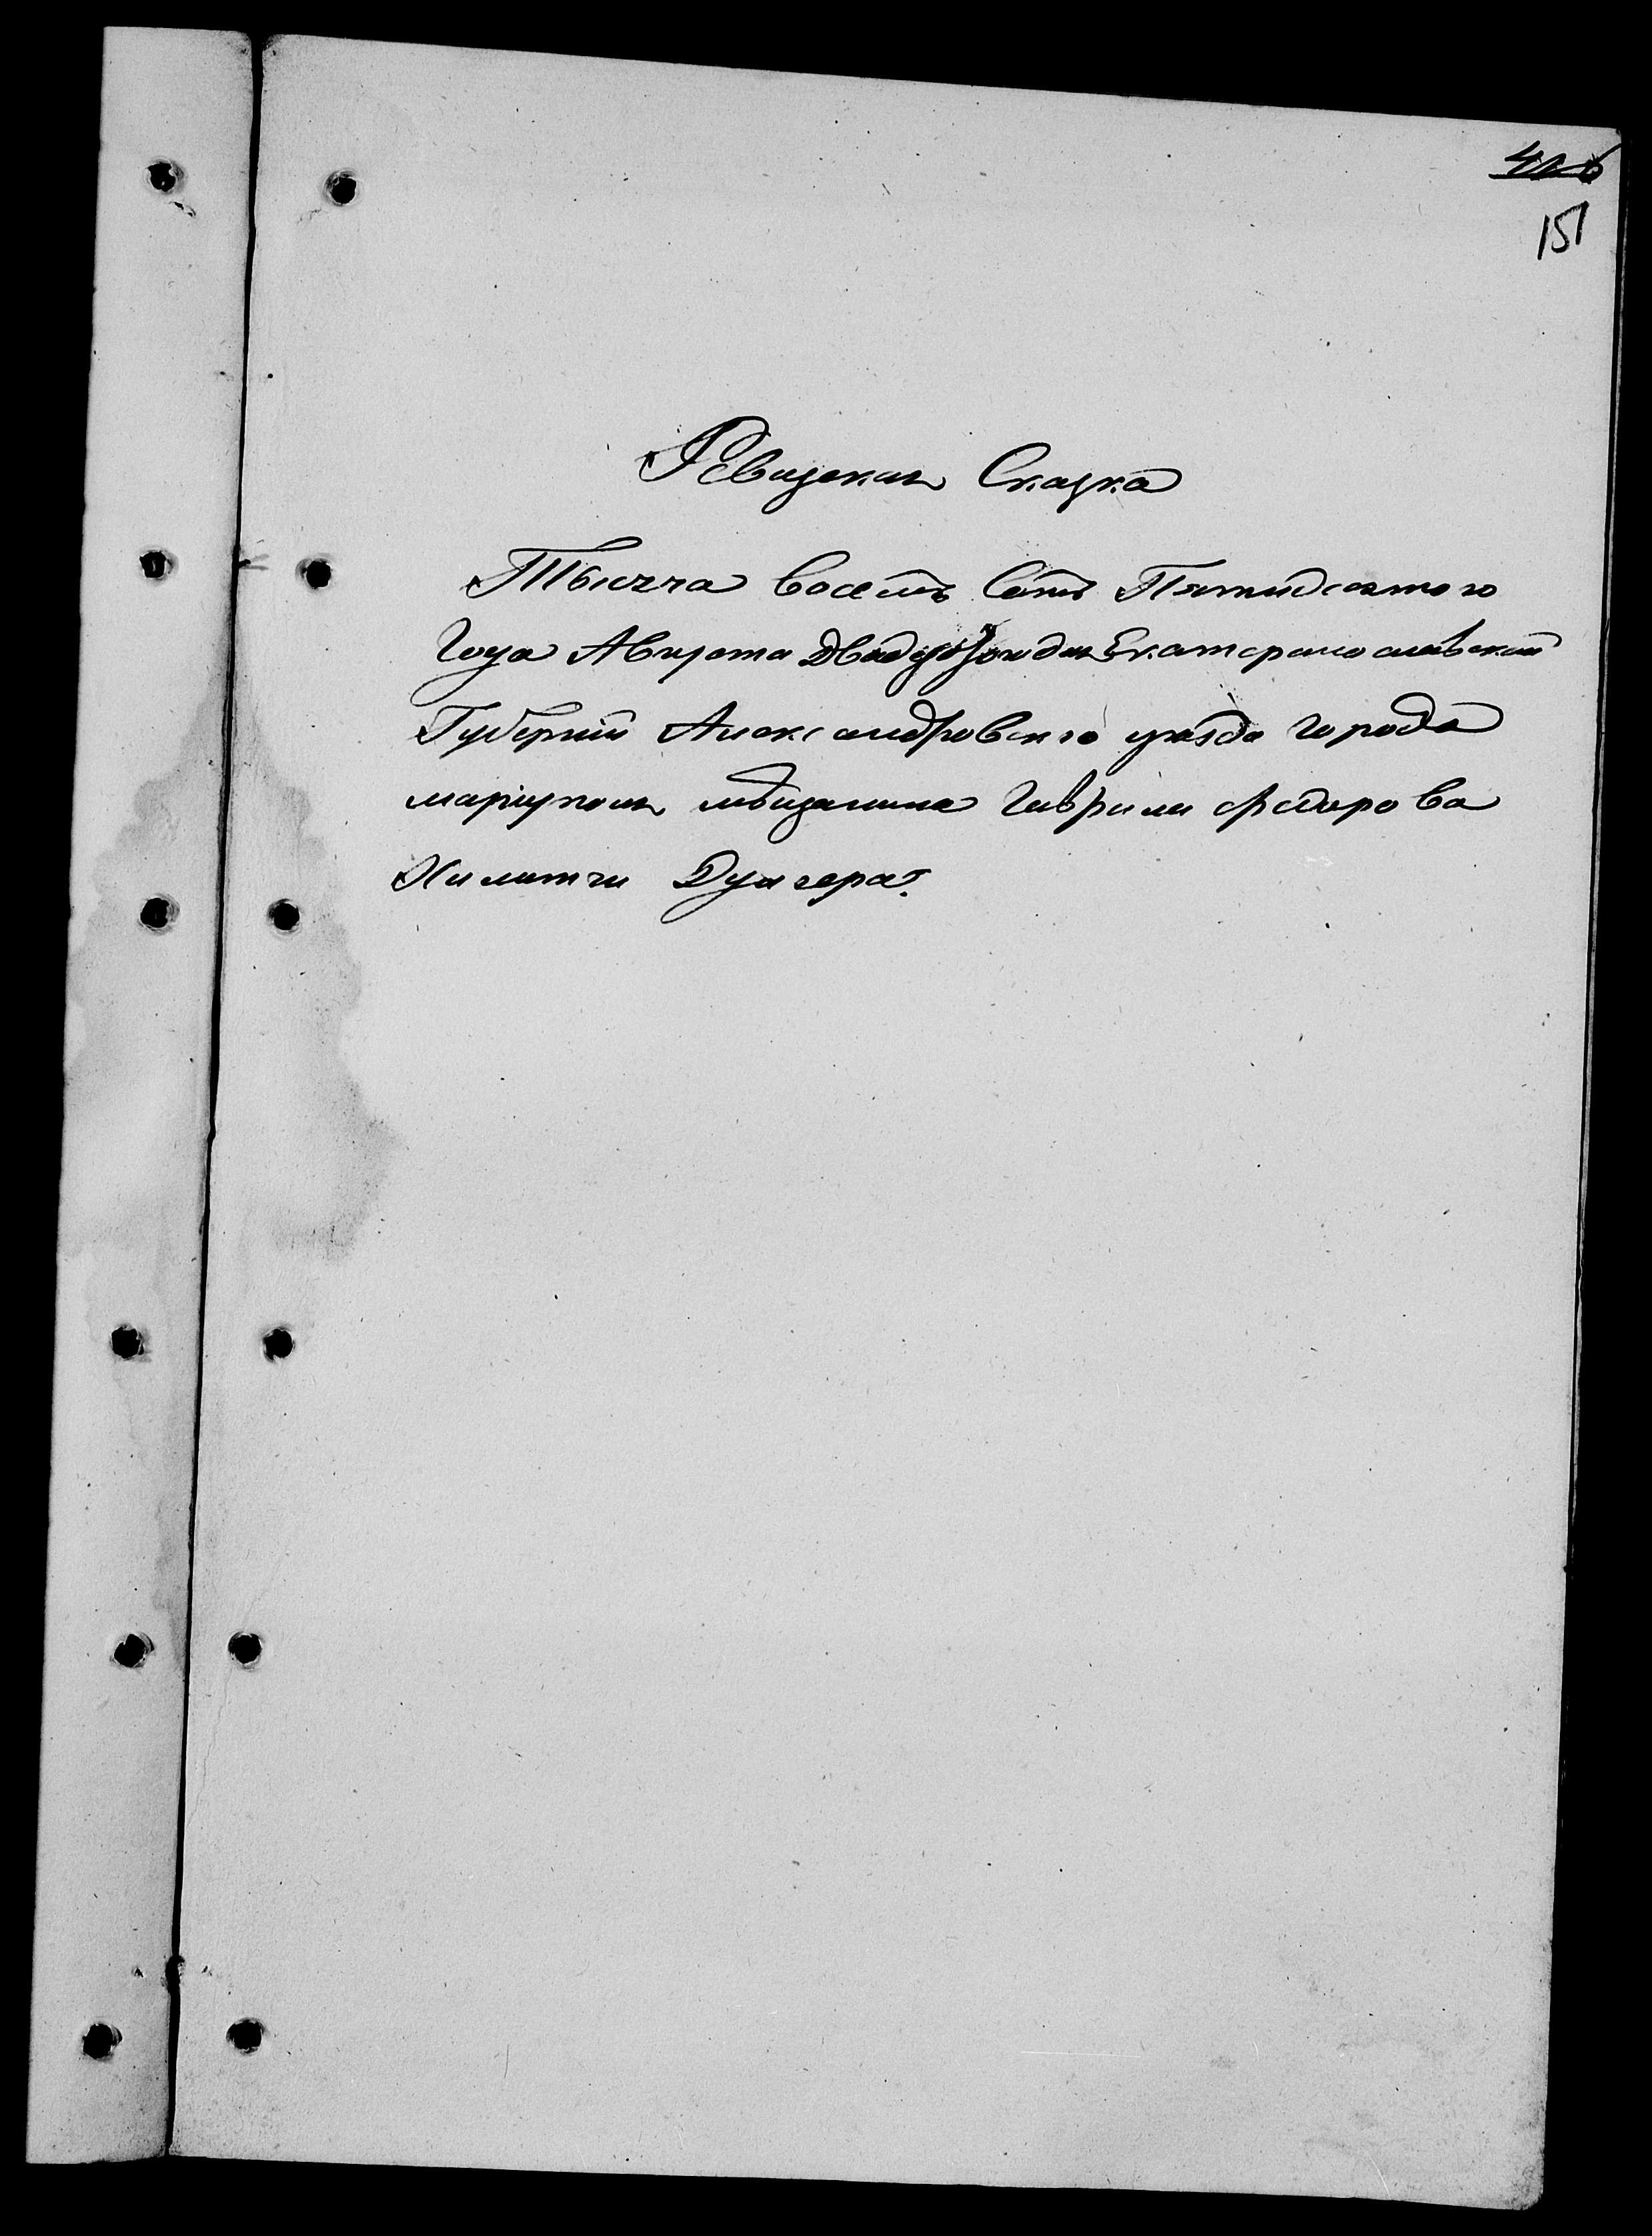 151
Ревизская Сказка
Тысяча восемъ Сотъ Пятидесятого
Года Августа Двадцать Екатеринославской
Губерніи Александровского уѣзда города
маріуполя мѣщанина Гаврила Федорова
Дулгера.